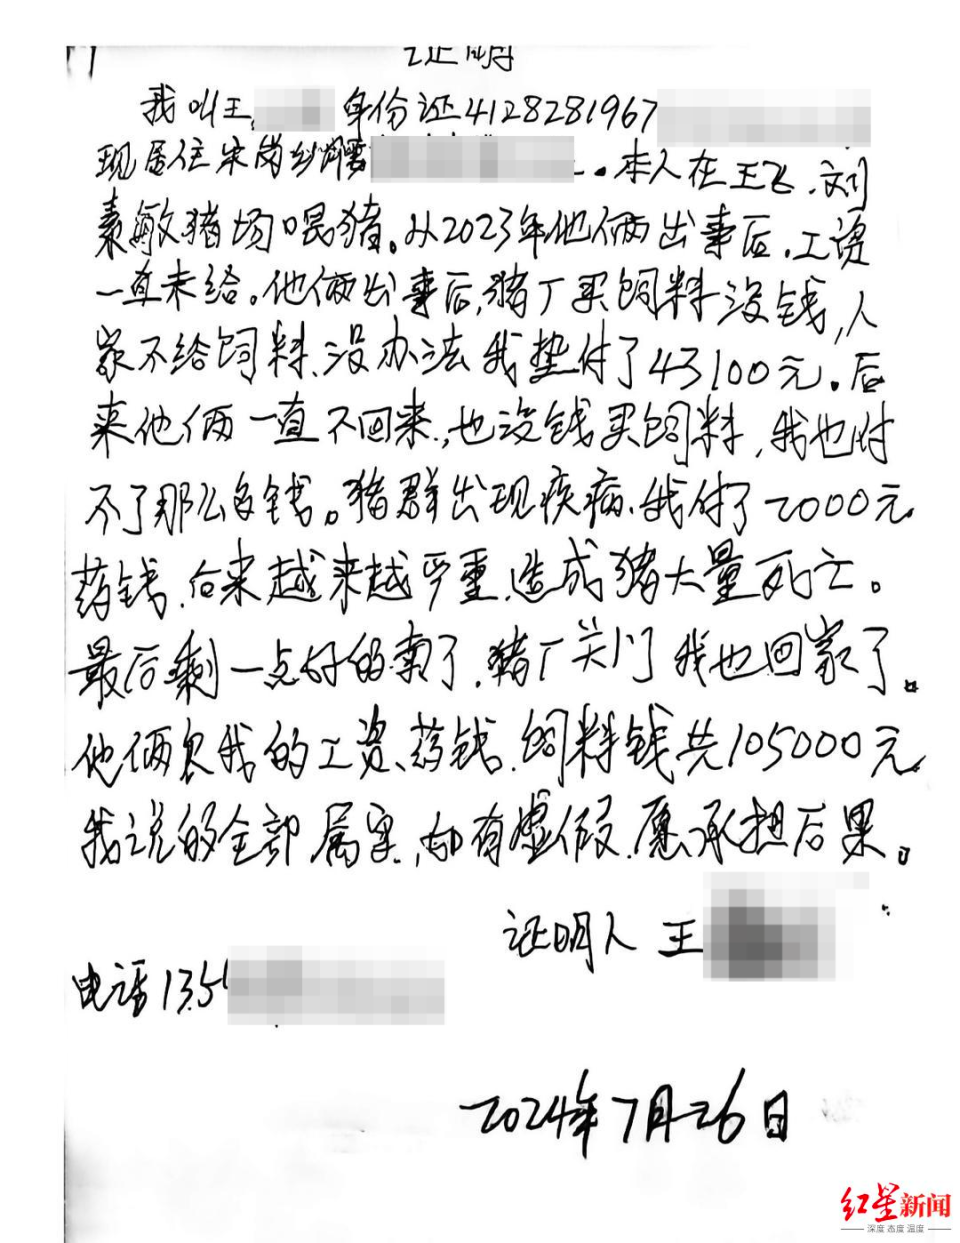 证明
我叫王 身份证4128281967
现居住宋岗乡
。本人在王飞、刘
素敏猪场喂猪。从2023年他俩出事后,工资
一直未给。他俩出事后,猪厂买饲料没钱,人
家不给饲料、没办法我垫付了43100元。后
来他俩一直不回来,也没钱买饲料,我也付
不了那么多钱。猪群出现疾病、我付了2000元
药钱、后来越来越严重、造成猪大量死亡。
最后剩一点好的卖了,猪厂关门我也回家了。
他俩欠我的工资、药钱、饲料钱共105000元
我说的全部属实,如有虚假、愿承担后果。
证明人 王
电话135
2024年7月26日
红星新闻
深度 态度 温度